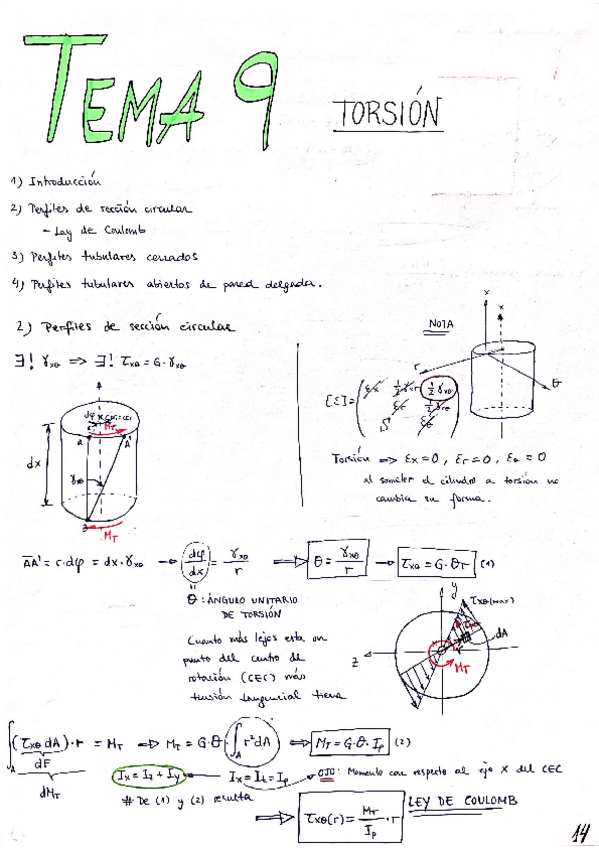 TEMA 9
TORSIÓN
1) Introducción
2) Perfiles de sección circular
- Ley de Coulomb
3) Perfiles tubulares cerrados
4) Perfiles tubulares abiertos de pared delgada.
2) Perfiles de sección circular
∃! γxθ => ∃! τxθ = G · γxθ
dx
γxθ
A A'
MT
B
MT
NOTA
x x
r
θ
[ε] =
εx ½ γxr ½ γxθ
εr ½ γrθ
εθ
Torsión => εx = 0, εr = 0, εθ = 0
al someter el cilindro a torsión no
cambia su forma.
AA' = r·dφ = dx·γxθ → dφ/dx = γxθ/r => θ = γxθ/r → τxθ = G·θr (1)
θ: ÁNGULO UNITARIO
DE TORSIÓN
Cuanto más lejos esta un
punto del centro de
rotación (CEC) más
tensión tangencial tiene
y
τxθ(max)
dA
r
z
MT
∫A (τxθ dA)·r = MT => MT = G·θ·∫A r²dA => MT = G·θ·Ip (2)
dF
dMT
Ix = Iz + Iy ← Ix = Iz = Ip → OJO: Momento con respecto al eje X del CEC
# De (1) y (2) resulta
=> τxθ(r) = MT/Ip · r LEY DE COULOMB
14